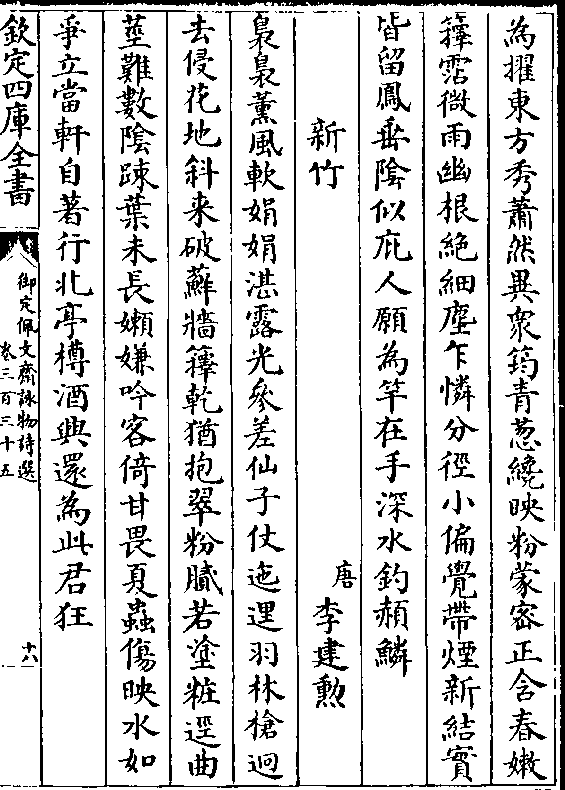 為擢東方秀蕭然異衆筠青葱纔映粉蒙密正含春嫩
籜霑微雨幽根絶細塵乍憐分徑小偏覺帶煙新結實
皆留鳳垂陰似庇人願為竿在手深水釣赬鱗
新竹
唐 李建勲
裊裊薫風軟娟娟湛露光參差仙子仗迤邐羽林槍迥
去侵花地斜来破蘚牆籜乾猶抱翠粉膩若塗粧逕曲
莖難數陰踈葉未長嬾嫌吟客倚甘畏夏蟲傷映水如
爭立當軒自著行北亭樽酒興還為此君狂
欽定四庫全書
御定佩文齋詠物詩選
卷三百三十五
十八